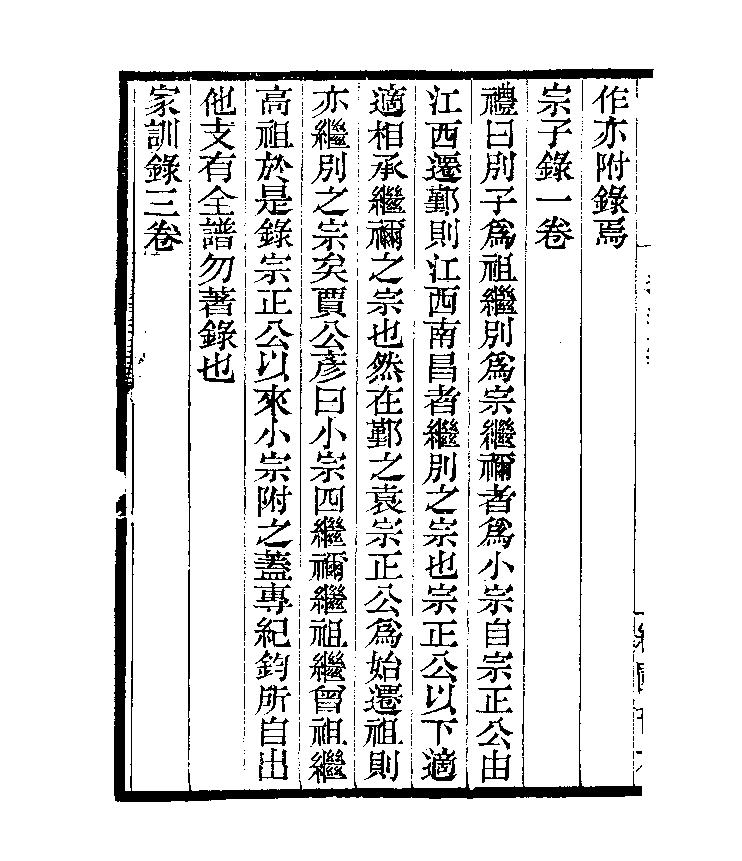 作亦附錄焉
宗子錄一卷
禮曰別子爲祖繼別爲宗繼禰者爲小宗自宗正公由
江西遷鄞則江西南昌者繼別之宗也宗正公以下適
適相承繼禰之宗也然在鄞之袁宗正公爲始遷祖則
亦繼別之宗矣賈公彥曰小宗四繼禰繼祖繼曾祖繼
高祖於是錄宗正公以來小宗附之蓋專紀鈞所自出
他支有全譜勿著錄也
家訓錄三卷